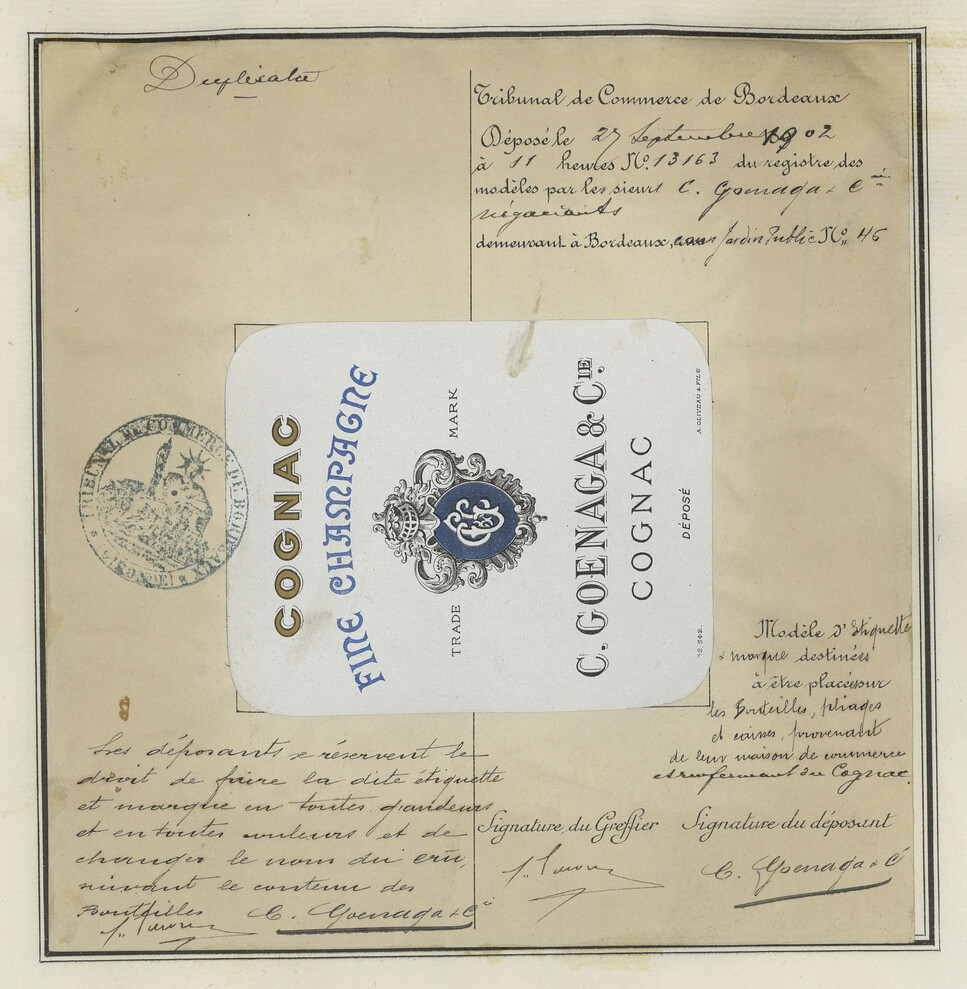 Duplicata
Tribunal de Commerce de Bordeaux
Déposé le 27 Septembre 1902
à 11 heures No. 13163 du registre des
modèles par les sieurs C. Goenaga & Cie
négociants
demeurant à Bordeaux, Jardin Public No. 46
COGNAC
FINE CHAMPAGNE
TRADE MARK
CG
C. GOENAGA & CIE.
COGNAC
DÉPOSÉ
A. OLIVEAU & FILS
TRIBUNAL DE COMMERCE DE BORDEAUX
Modèle d'Etiquette
& marque destinées
à être placées sur
les Bouteilles, pliages
et caisses, provenant
de leur maison de commerce
et renfermant du Cognac.
Les déposants se réservent le
droit de faire la dite étiquette
et marque en toutes grandeurs
et en toutes couleurs et de
changer le nom du crû,
suivant le contenu des
Bouteilles C. Goenaga & Cie
Signature du Greffier
Signature du déposant
C. Goenaga & Cie